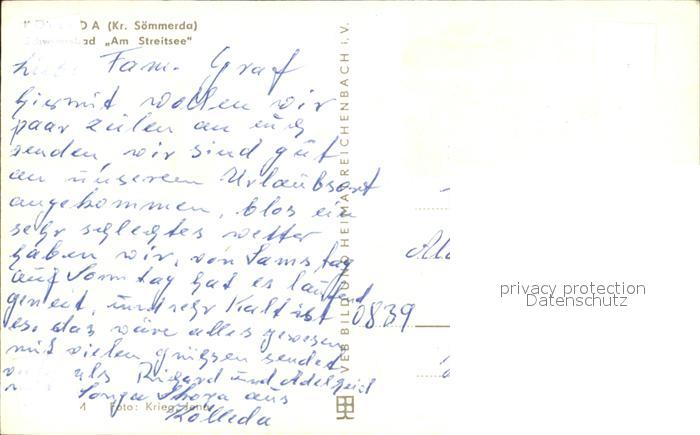 DA (Kr. Sömmerda)
bad „Am Streitsee"
Liebe Fam. Graf
hiermit wollen wir
paar zeilen an euch
senden, wir sind gut
an unserem Urlaubsort
angekommen, blos ein
sehr schlegtes wetter
haben wir, von Samstag
auf Sonntag hat es laufend
gereit, und sehr Kalt ist
es, das wäre alles gewesen
mit vielen grüssen sendet
als Rigard und Adelgeid
Sonya aus
Kölleda
Foto: Krieg, Jena
VEB BILD UND HEIMAT REICHENBACH i. V.
0839
privacy protection
Datenschutz